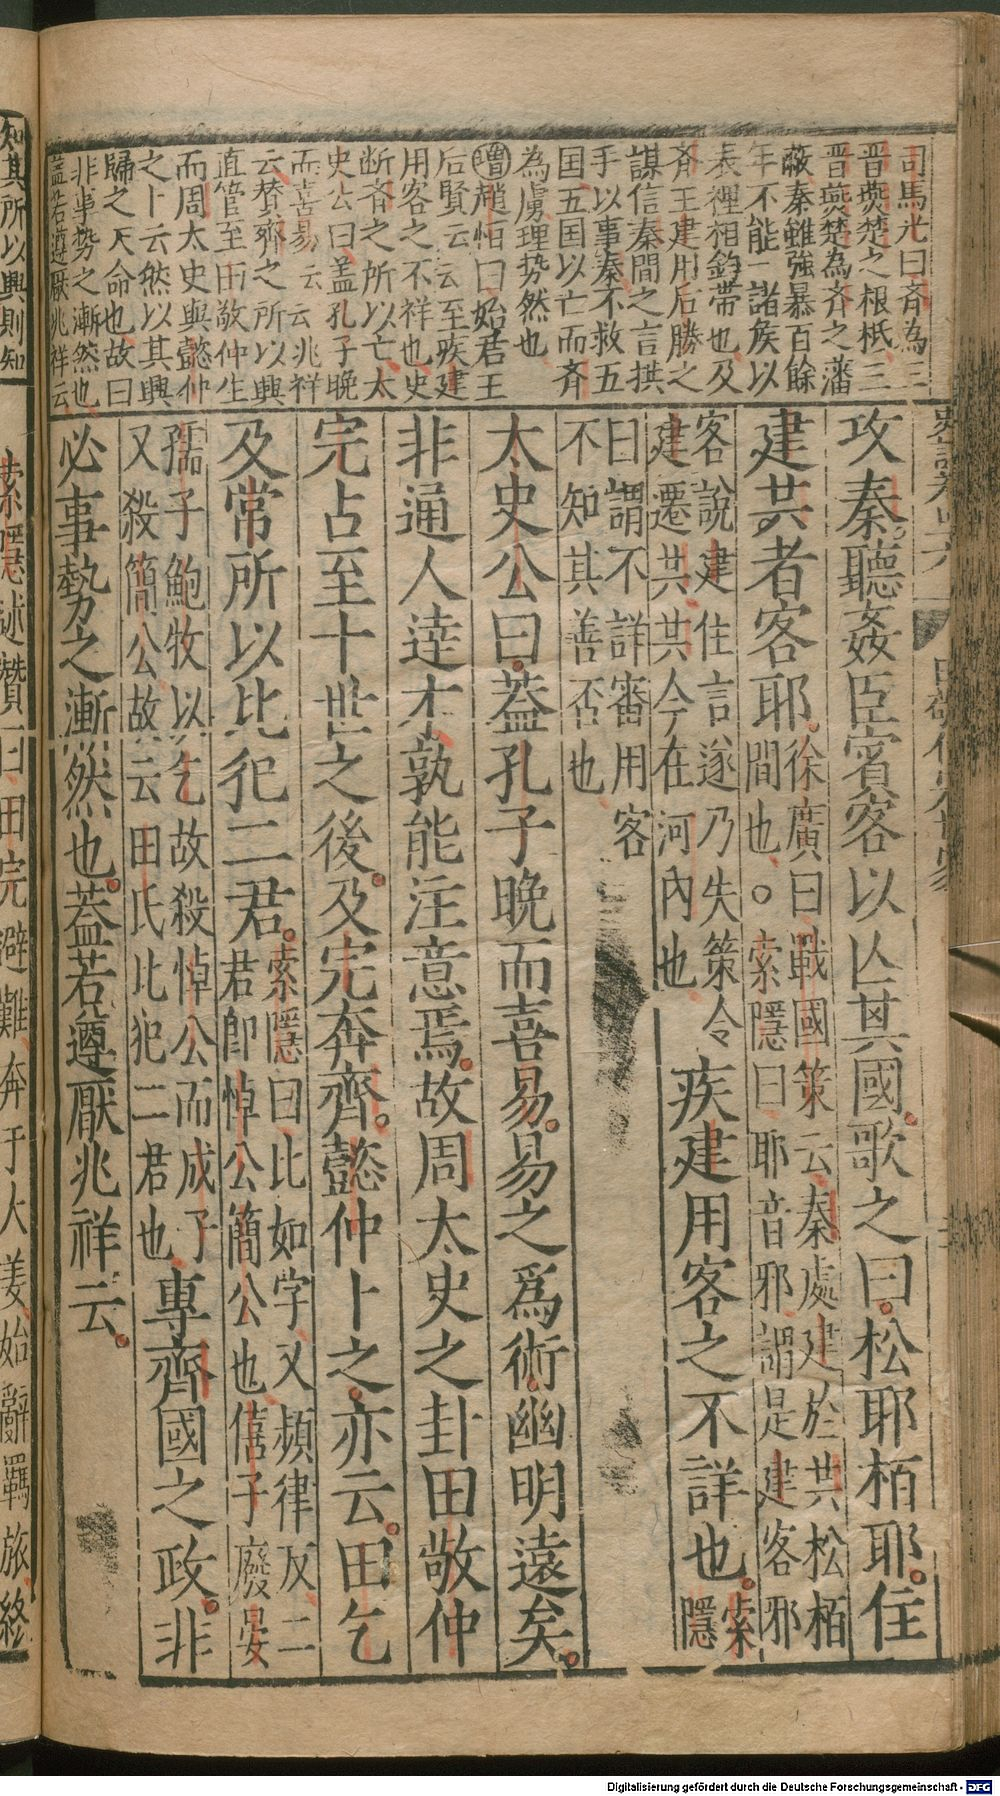 司馬光曰斉為三
晋燕楚之根柢三
晋燕楚為斉之藩
蔽秦雖強暴百餘
年不能一諸侯以
表裡相鈎帯也及
斉王建用后勝之
謀信秦間之言拱
手以事秦不救五
国五国以亡而斉
為虜理势然也
増趙恒曰始君王
后賢云云至疾建
用客之不祥也史
断斉之所以亡太
史公曰盖孔子晩
而喜易云云兆祥
云賛齊之所以興
直管至田敬仲生
而周太史與懿仲
之卜云然以其興
歸之天命也故曰
非事势之漸然也
盖若遵厭兆祥云
攻秦聽姦臣賓客以亾其國歌之曰松耶栢耶住
建共者客耶徐廣曰戰國策云秦處建於共松栢
間也○索隱曰耶音邪謂是建客邪
客說建住言遂乃失策令
建遷共共今在河內也疾建用客之不詳也索隱
曰謂不詳審用客
不知其善否也
太史公曰蓋孔子晚而喜易易之爲術幽明遠矣
非通人達才孰能注意焉故周太史之卦田敬仲
完占至十世之後及完奔齊懿仲卜之亦云田乞
及常所以比犯二君索隱曰比如字又頻律反二
君即悼公簡公也僖子廢晏
孺子鮑牧以乞故殺悼公而成子
又殺簡公故云田氏比犯二君也專齊國之政非
必事勢之漸然也蓋若遵厭兆祥云
知其所以興則知
索隱述贊曰田完避難奔于大姜始辭羈旅終
Digitalisierung gefördert durch die Deutsche Forschungsgemeinschaft - DFG